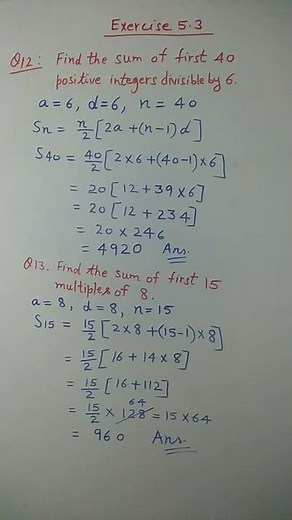 Exercise 5.3
Q12: Find the sum of first 40
positive integers divisible by 6.
a=6, d=6, n = 40
Sn = n/2 [2a +(n-1)d]
S40 = 40/2 [2×6+(40-1)×6]
= 20 [12 + 39 × 6]
= 20 [12 + 234]
= 20 × 246
= 4920 Ans.
Q13. Find the sum of first 15
multiples of 8.
a=8, d=8, n=15
S15 = 15/2 [2×8 +(15-1)×8]
= 15/2 [16 + 14 × 8]
= 15/2 [16 + 112]
64
= 15/2 × 128 = 15 × 64
= 960 Ans.